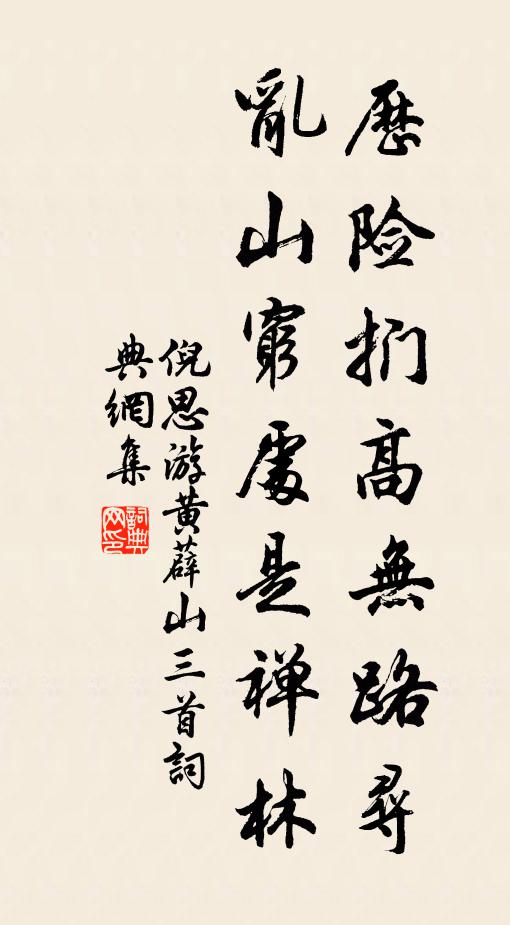 歷险捫高無路尋
亂山窮處是禅林
倪思游黄薜山三首詞
典網集
詞典网印